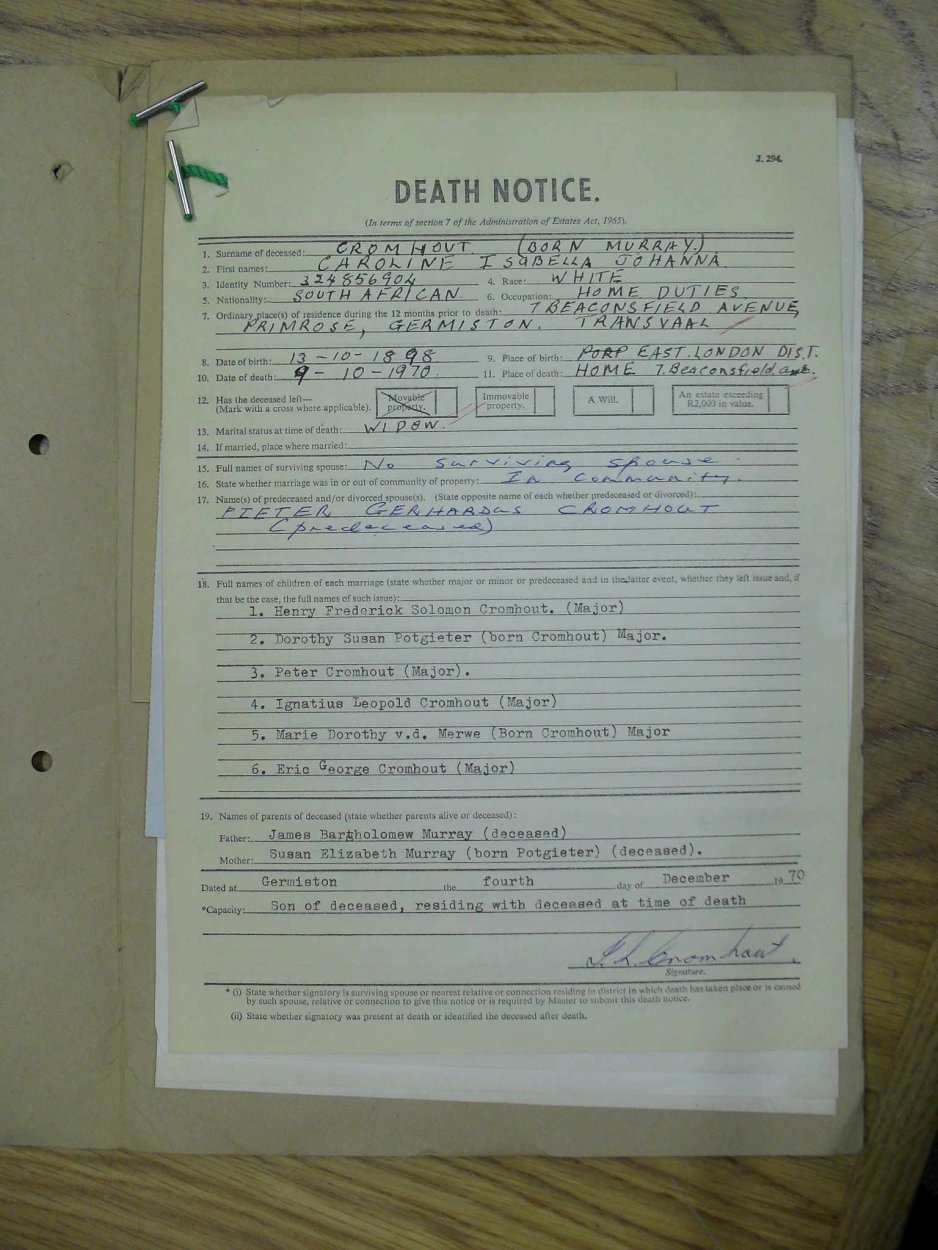 J. 294.
DEATH NOTICE.
(In terms of section 7 of the Administration of Estates Act, 1965).
1. Surname of deceased: CROMHOUT (BORN MURRAY.)
2. First names: CAROLINE ISABELLA JOHANNA
3. Identity Number: 324856904 4. Race: WHITE
5. Nationality: SOUTH AFRICAN. 6. Occupation: HOME DUTIES
7. Ordinary place(s) of residence during the 12 months prior to death: 7 BEACONSFIELD AVENUE,
PRIMROSE, GERMISTON. TRANSVAAL
8. Date of birth: 13-10-1898 9. Place of birth: EAST. LONDON DIST.
10. Date of death: 9-10-1970. 11. Place of death: HOME 7. Beaconsfield ave.
12. Has the deceased left— Movable Immovable A Will. An estate exceeding
(Mark with a cross where applicable). property. property. R2,000 in value.
13. Marital status at time of death: WIDOW.
14. If married, place where married:
15. Full names of surviving spouse: No surviving spouse.
16. State whether marriage was in or out of community of property: In community.
17. Name(s) of predeceased and/or divorced spouse(s). (State opposite name of each whether predeceased or divorced):
PIETER GERHARDUS CROMHOUT
(predeceased)
18. Full names of children of each marriage (state whether major or minor or predeceased and in the latter event, whether they left issue and, if
that be the case, the full names of such issue):
1. Henry Frederick Solomon Cromhout. (Major)
2. Dorothy Susan Potgieter (born Cromhout) Major.
3. Peter Cromhout (Major).
4. Ignatius Leopold Cromhout (Major)
5. Marie Dorothy v.d. Merwe (Born Cromhout) Major
6. Eric George Cromhout (Major)
19. Names of parents of deceased (state whether parents alive or deceased):
Father: James Bartholomew Murray (deceased)
Mother: Susan Elizabeth Murray (born Potgieter) (deceased).
Dated at Germiston the fourth day of December 1970
*Capacity: Son of deceased, residing with deceased at time of death
I. L. Cromhout.
Signature.
* (i) State whether signatory is surviving spouse or nearest relative or connection residing in district in which death has taken place or is caused
by such spouse, relative or connection to give this notice or is required by Master to submit this death notice.
(ii) State whether signatory was present at death or identified the deceased after death.